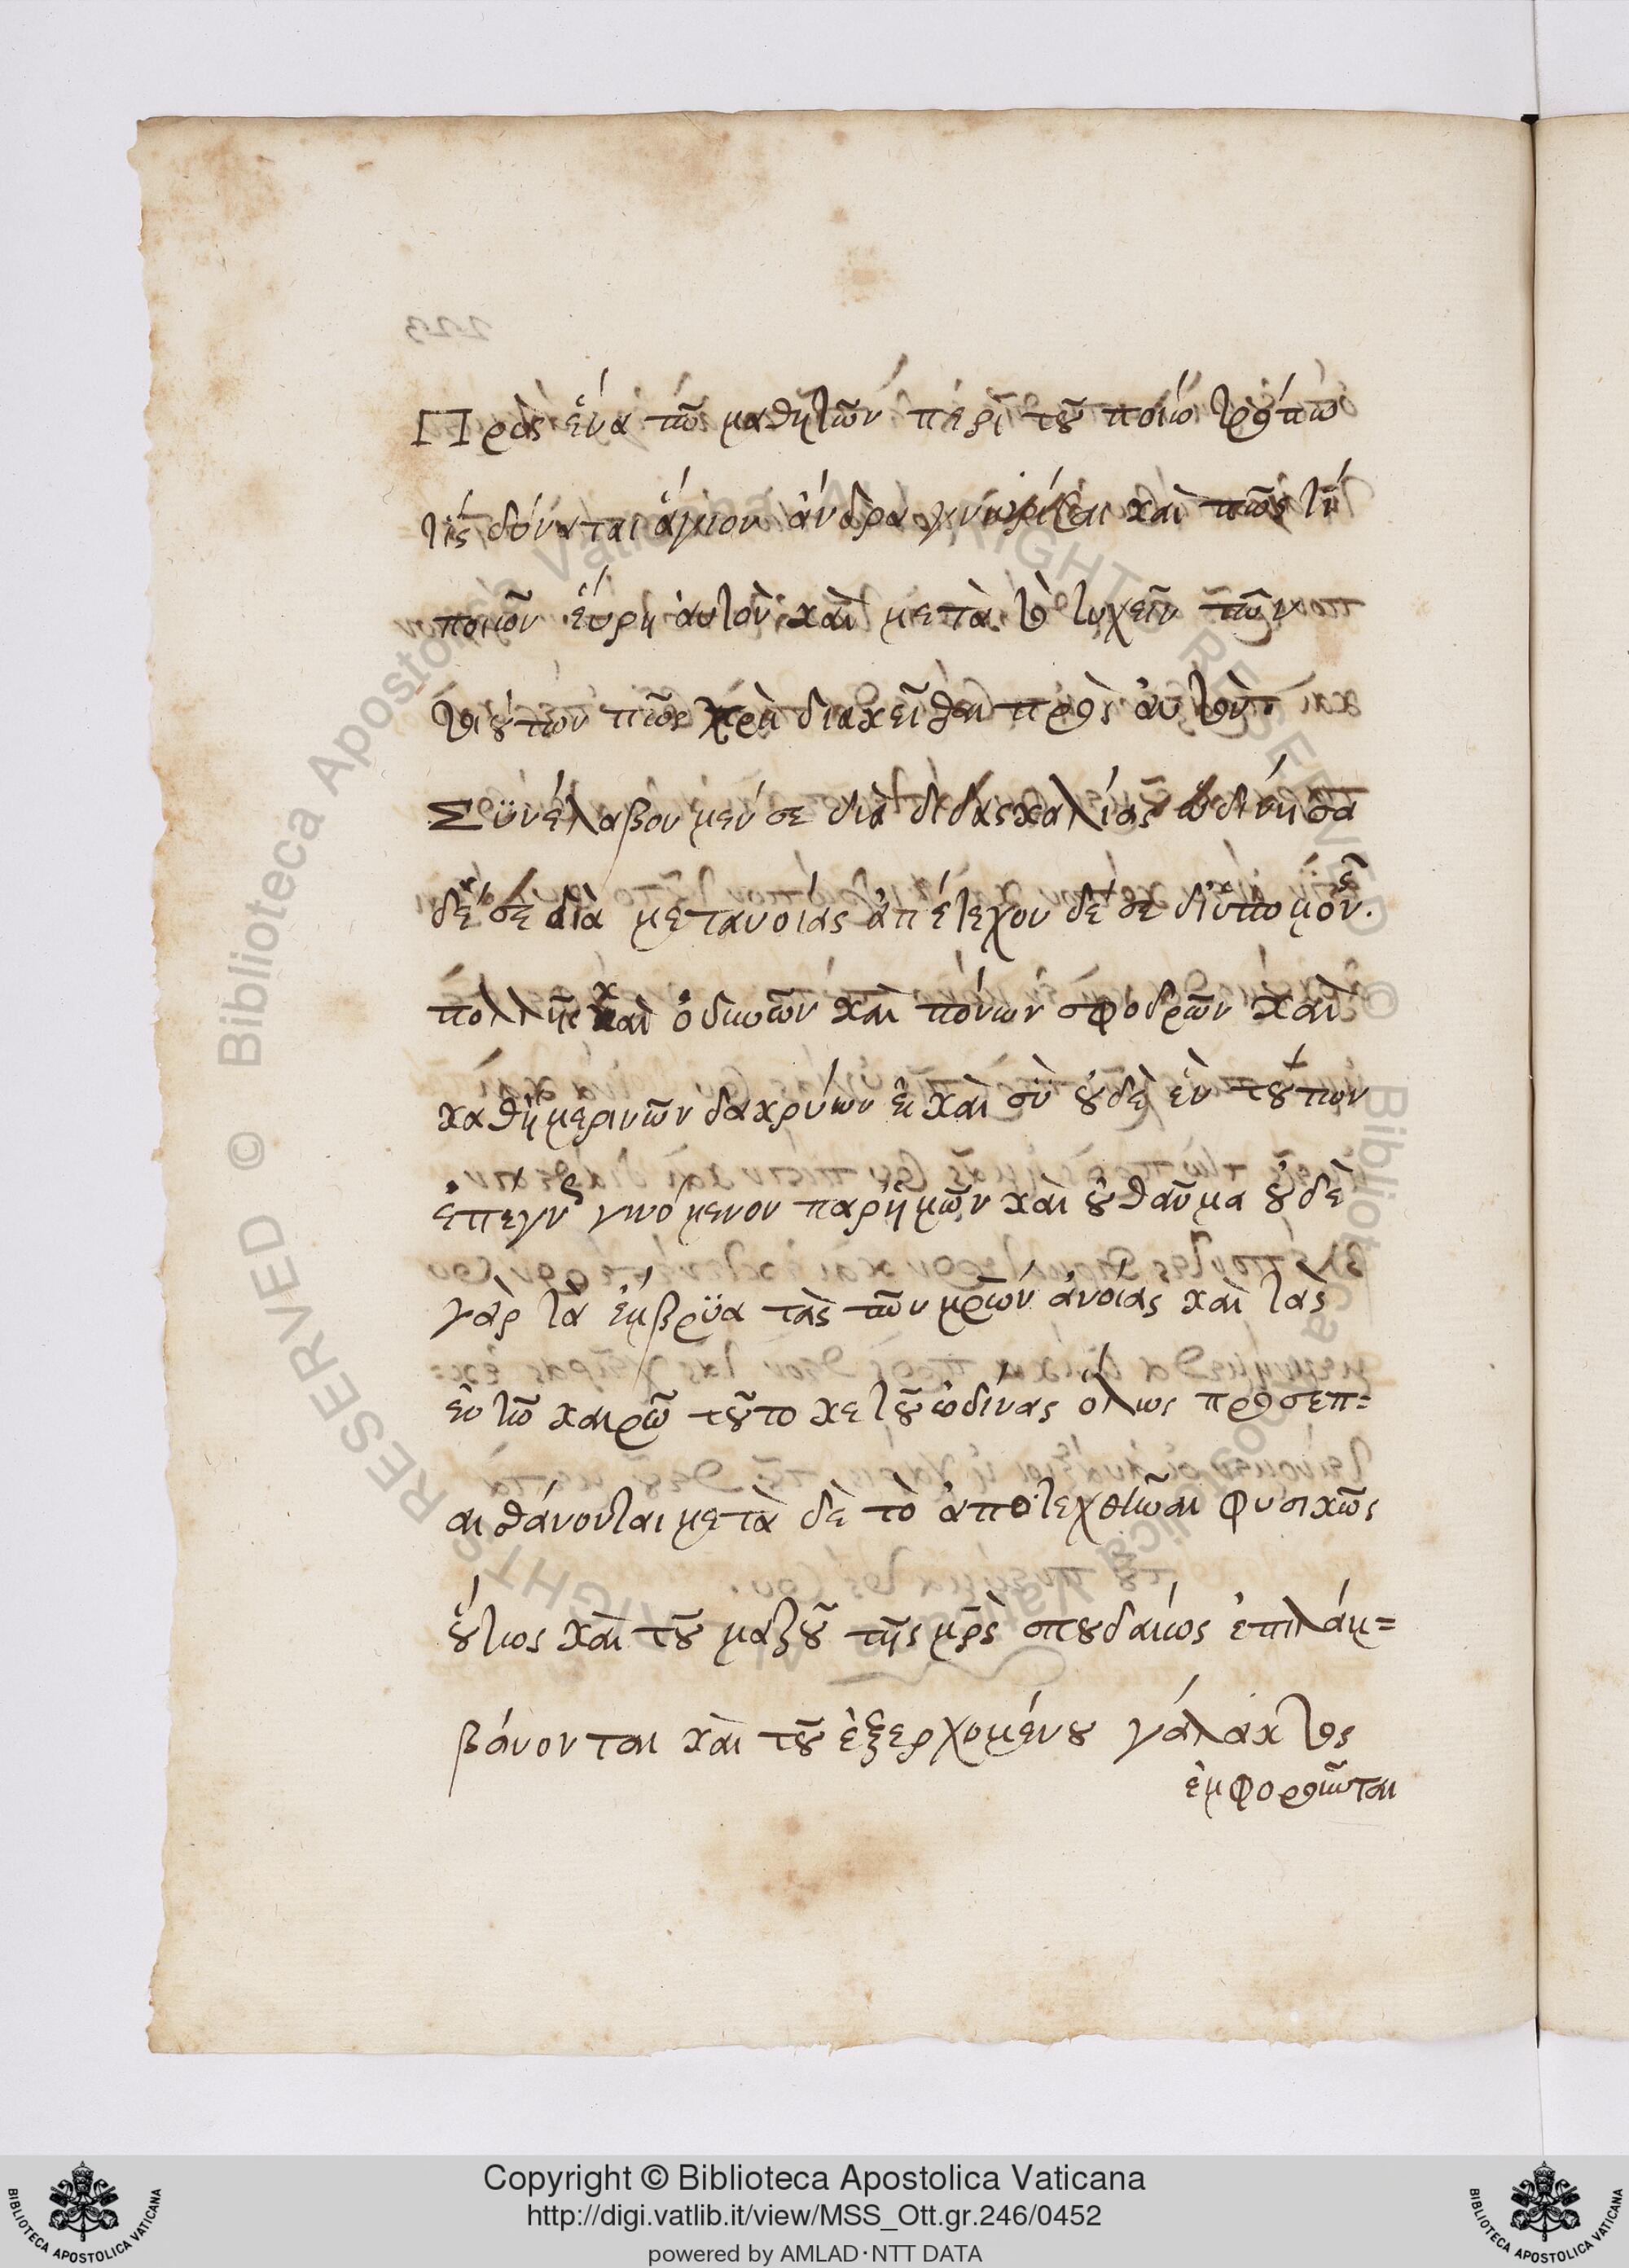 Πρὸς ἕνα τῶ μαθητῶν περὶ τοῦ ποίω τρόπω
τίς δύναται ἅγιον ἄνδρα γνωρίσαι καὶ πῶς τί
ποιῶν εὕρη αὐτὸν καὶ μετὰ τὸ τυχεῖν τῶν
τοιούτον πῶς χρὴ διακεῖσθαι πρὸς αὐτὸν.
Συνέλαβον μέν σε διὰ διδασκαλίας ὠδίνησα
δέ σε διὰ μετανοίας ἀπέτεχον δέ σε δι'ὑπομον.
πολλῆς καὶ ὀδινῶν καὶ πόνων σφοδρῶν καὶ
καθημερινῶν δακρύων εἰ καὶ σὺ οὐδὲ ἓν τούτων
ἐπέγνς γινόμενον παρ'ἡμῶν καὶ οὐ θαῦμα οὐδὲ
γὰρ τὰ ἔμβρϋα τὰς τῶν μρῶν ἀνοίας καὶ τὰς
ἐν τῶ καιρῶ τοῦ τοκετοῦ ὠδίνας ὅλως προσεπ=
αισθάνονται μετὰ δὲ τὸ ἀποτεχθῆναι φυσικῶς
οὕτως καὶ τοῦ μαζοῦ τῆς μρς σπουδαίως ἐπιλάμ=
βάνονται καὶ τοῦ ἐξερχομένου γάλακτος
ἐμφοροῦνται
Copyright © Biblioteca Apostolica Vaticana
http://digi.vatlib.it/view/MSS_Ott.gr.246/0452
powered by AMLAD·NTT DATA
BIBLIOTECA APOSTOLICA VATICANA
BIBLIOTECA APOSTOLICA VATICANA